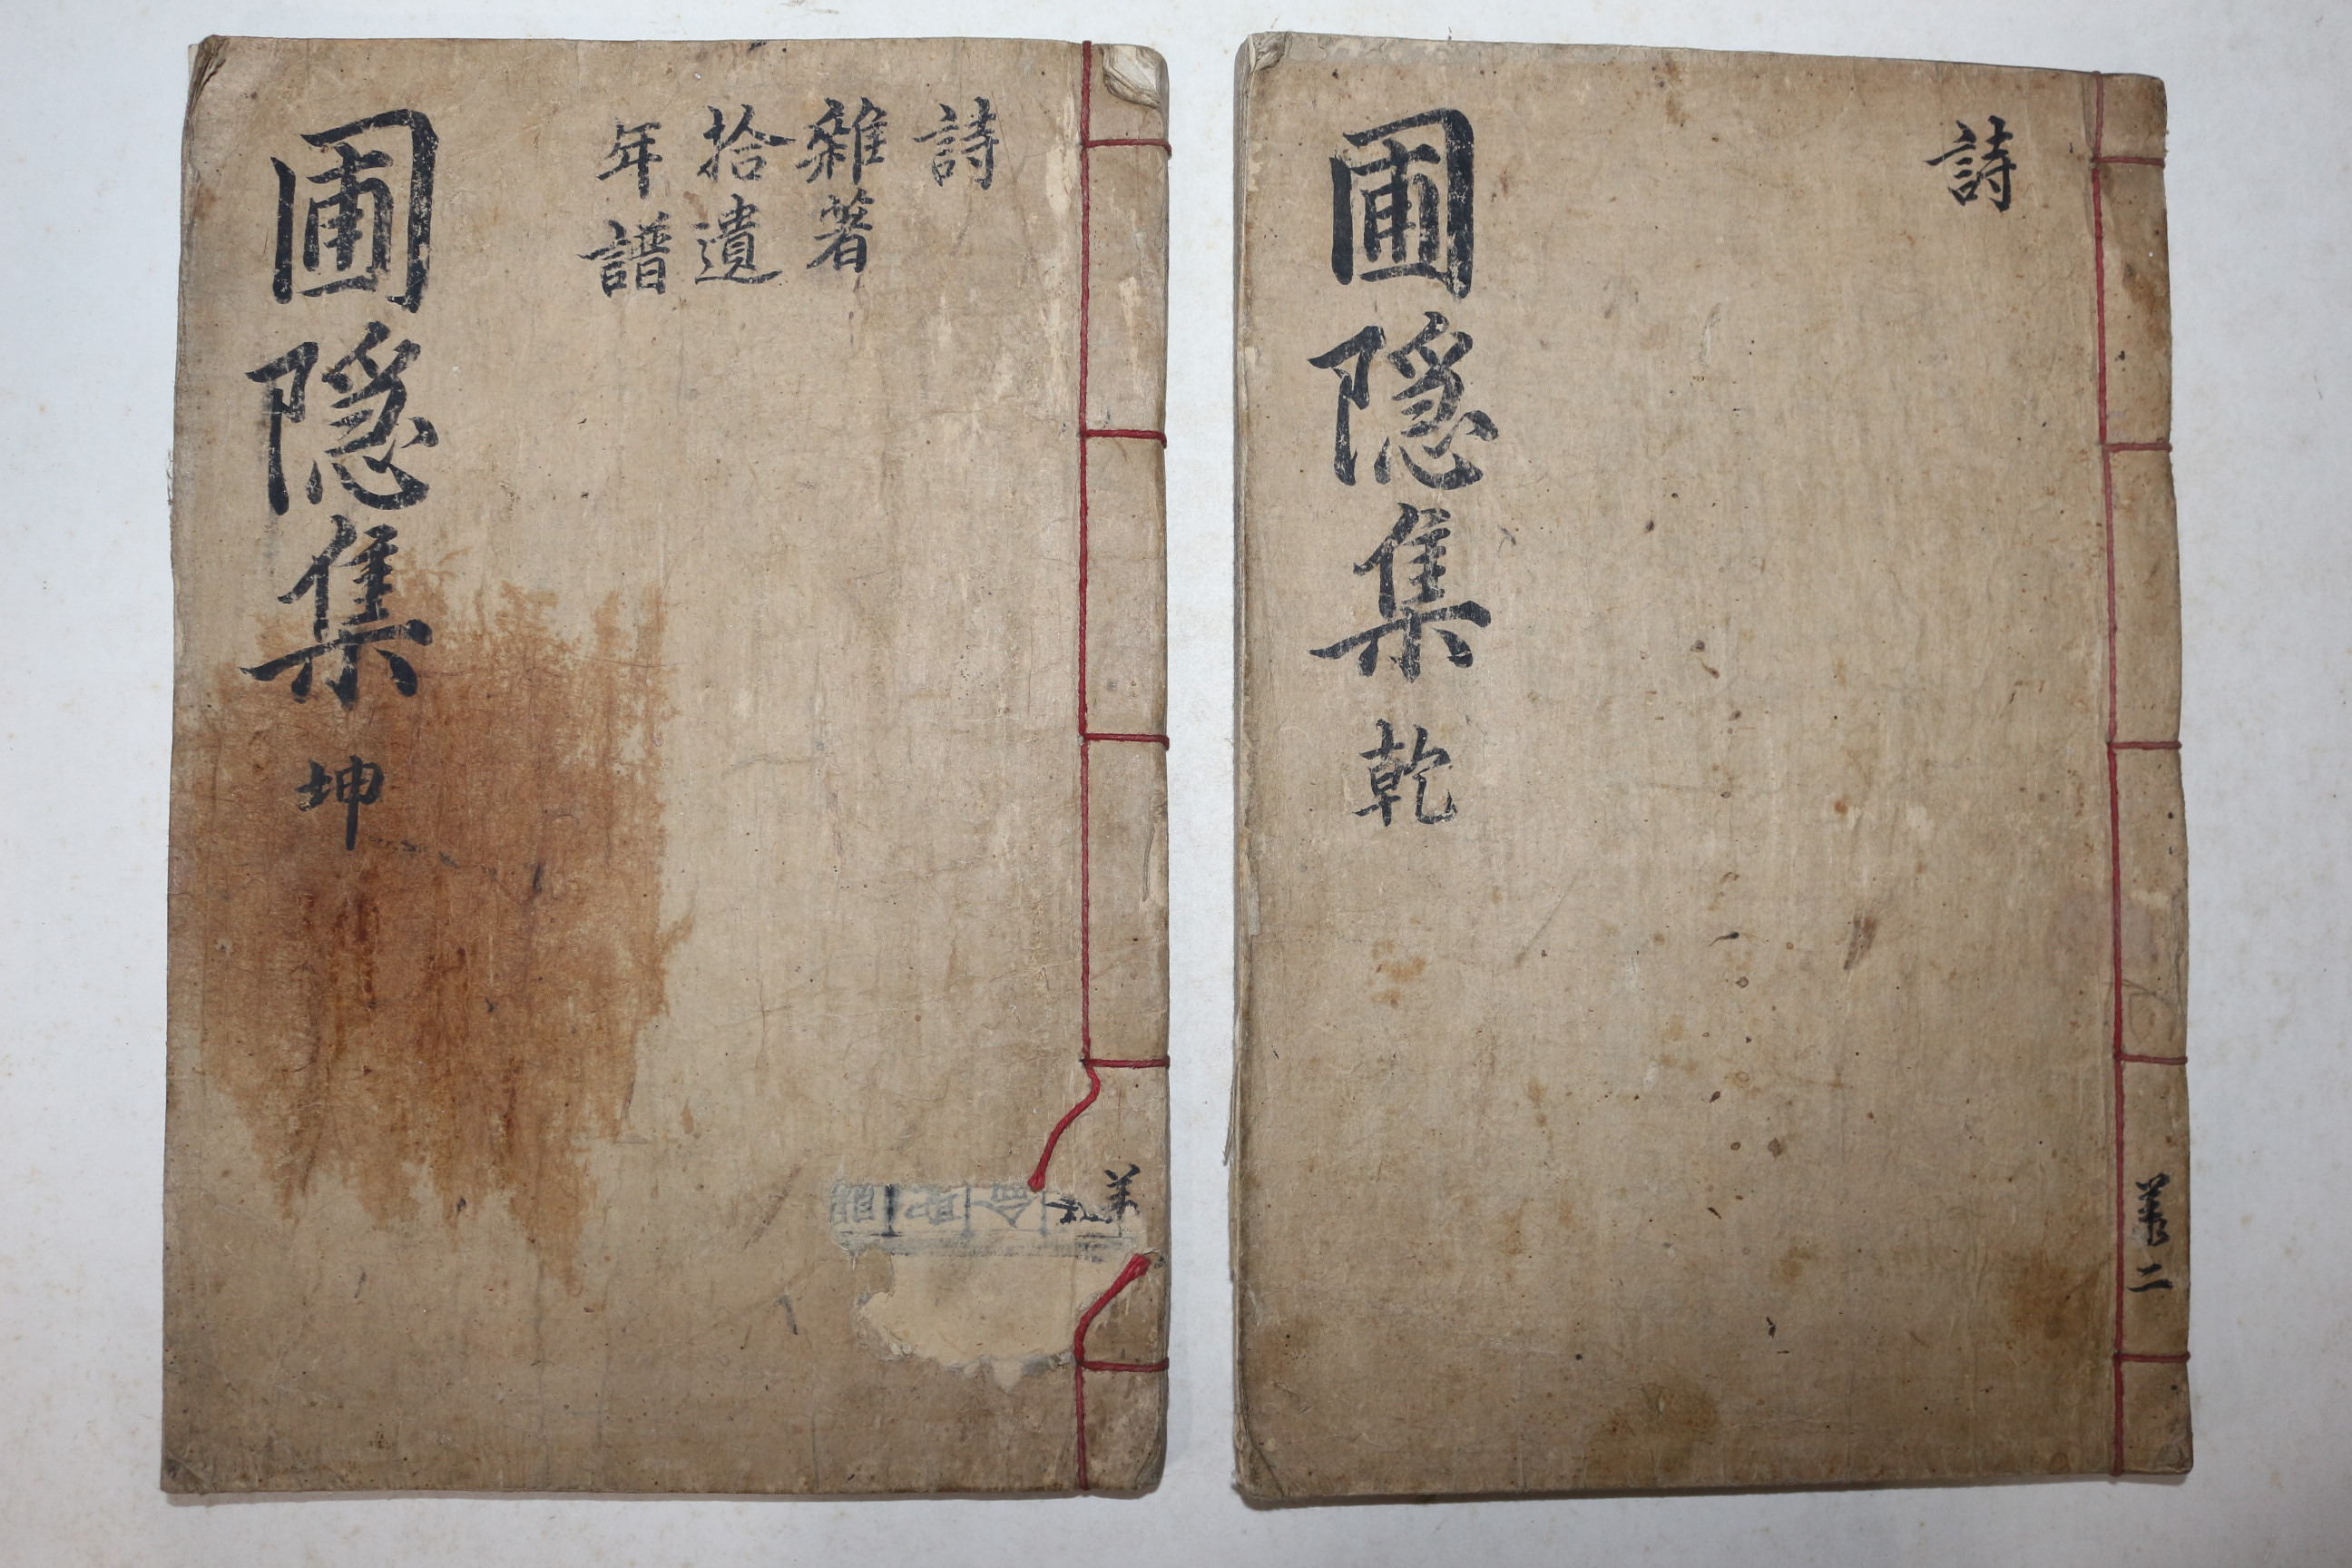 詩
圃隱集 乾
共二
詩
雜著
拾遺
年譜
圃隱集 坤
共